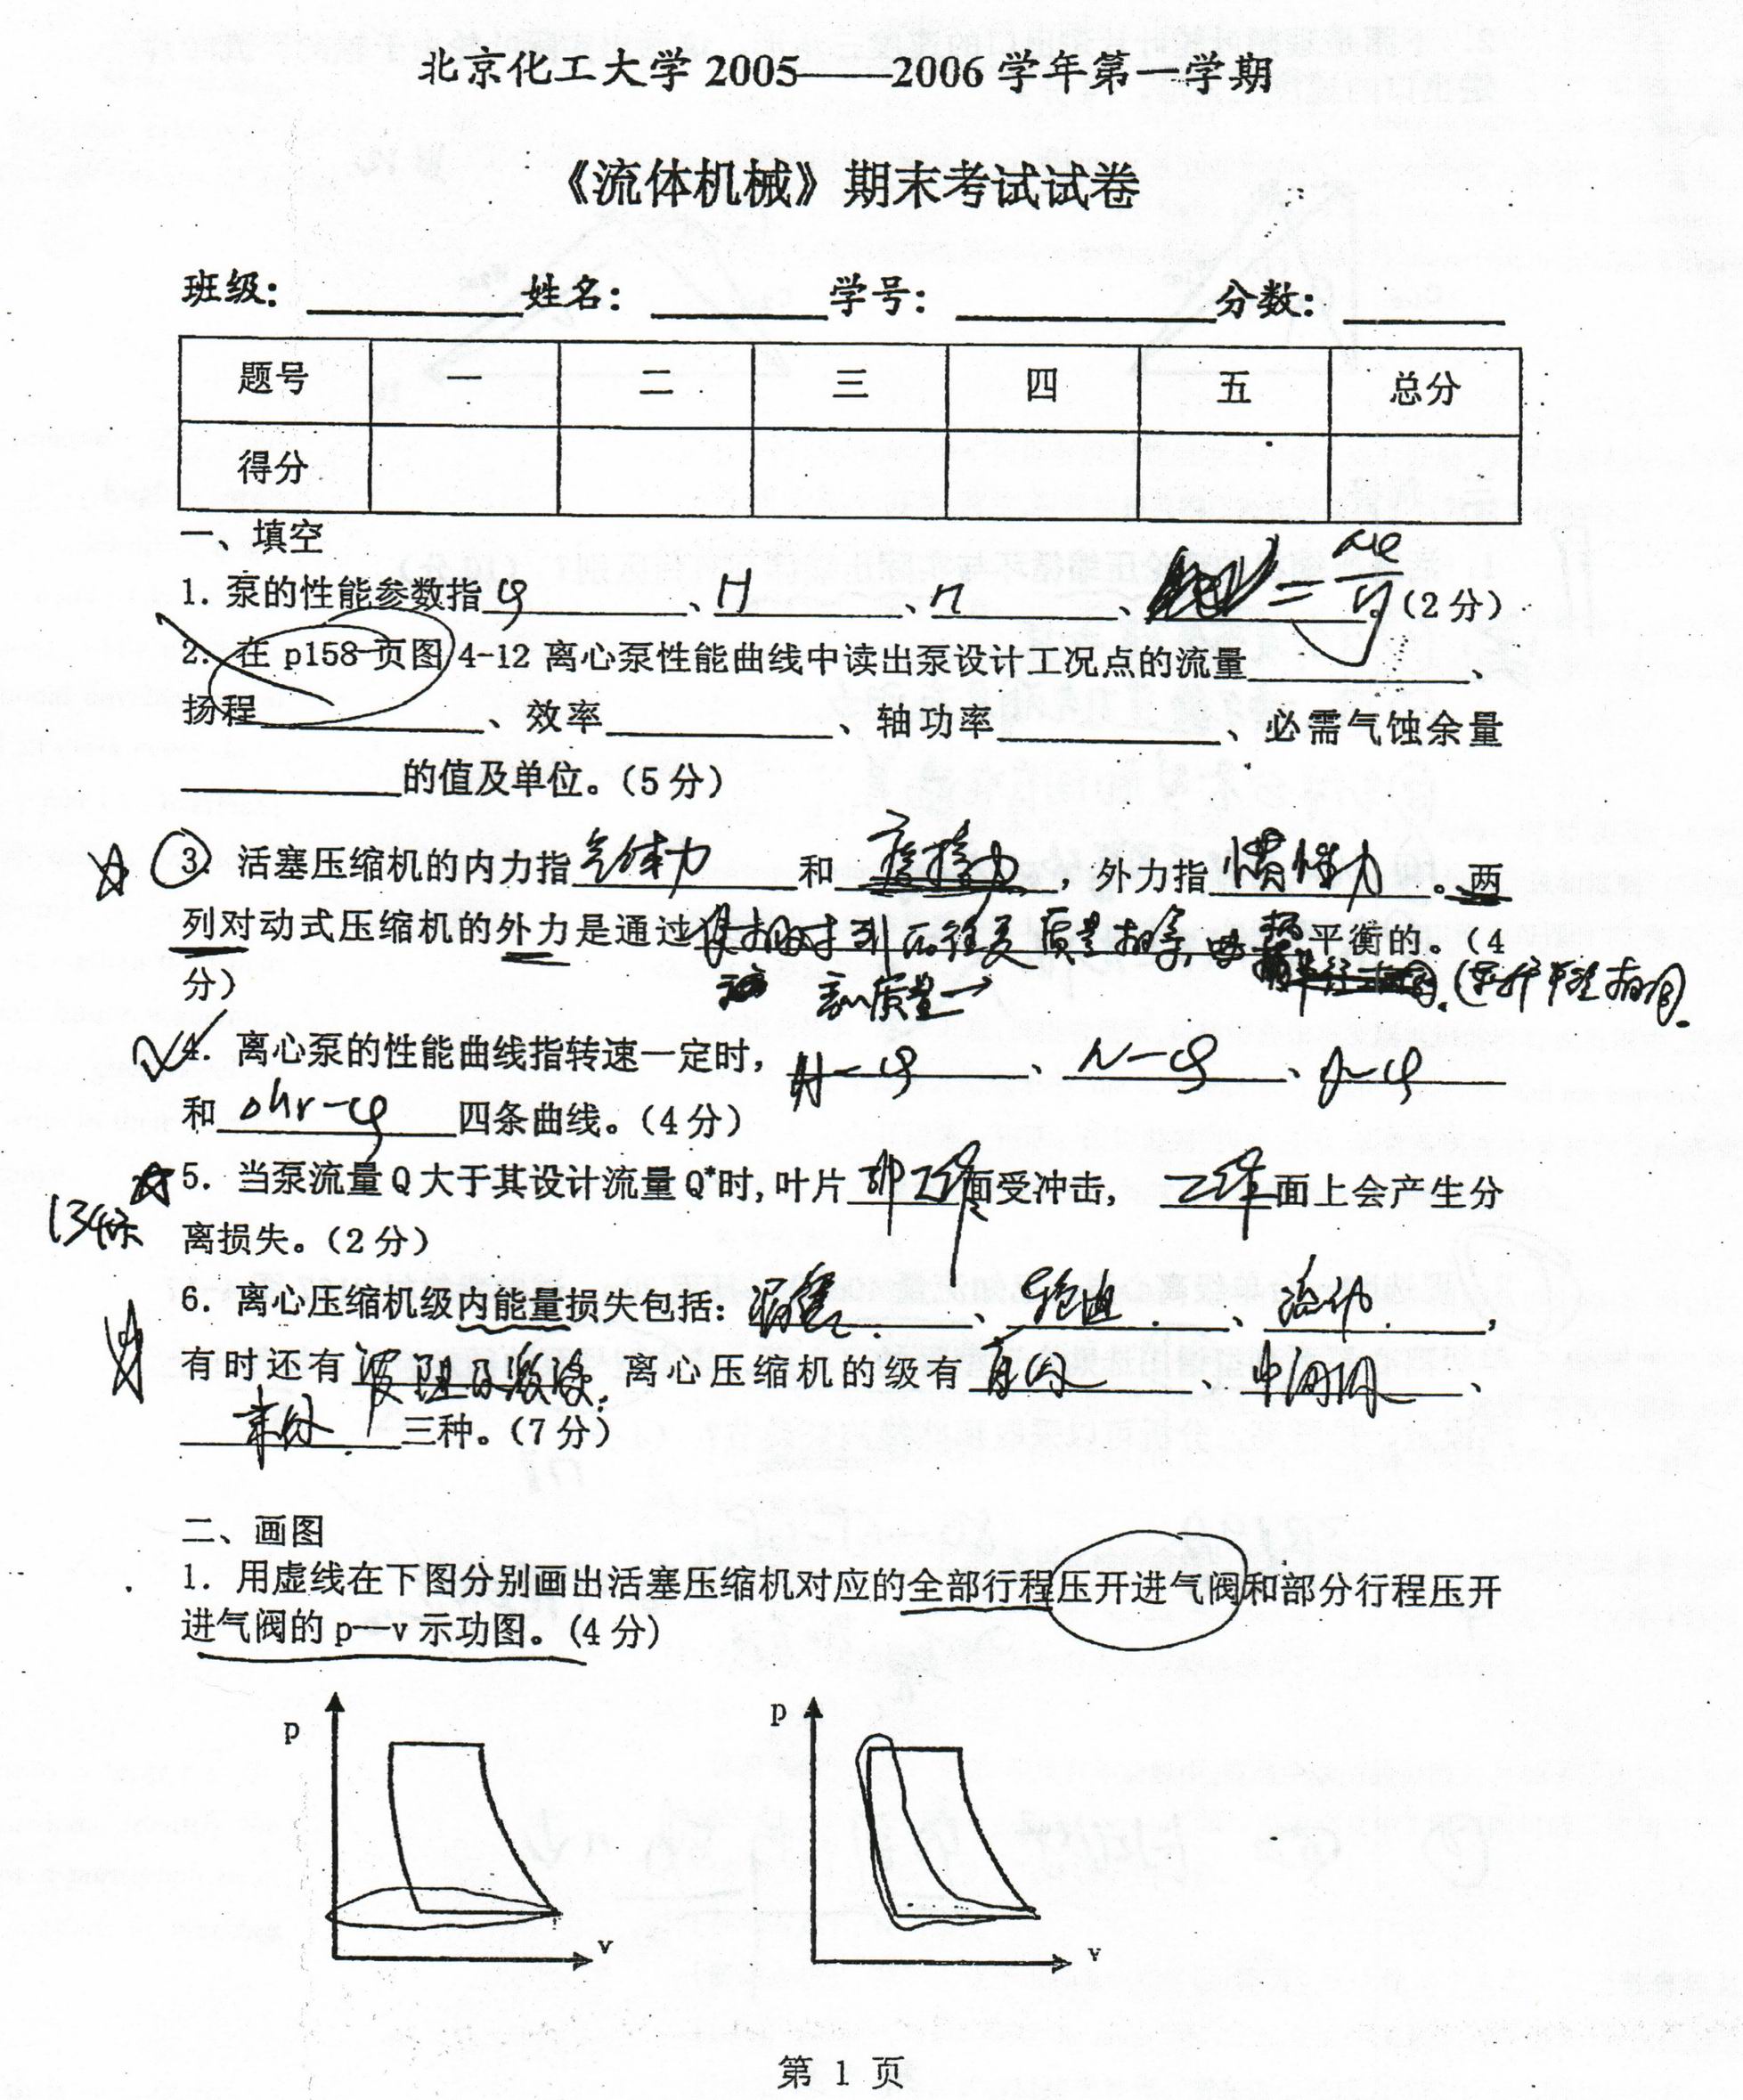 北京化工大学 2005——2006 学年第一学期
《流体机械》期末考试试卷
班级: 姓名: 学号: 分数:
题号 一 二 三 四 五 总分
得分
一、填空
1. 泵的性能参数指 Q 、 H 、 n 、 。(2 分)
2. 在 p158 页图 4-12 离心泵性能曲线中读出泵设计工况点的流量 、
扬程 、效率 、轴功率 、必需气蚀余量
的值及单位。(5 分)
3. 活塞压缩机的内力指 气体力 和 摩擦力 ,外力指 惯性力 。两
列对动式压缩机的外力是通过 使相对列的往复质量相等, 平衡的。(4
分)
质量→ 半径相同.
4. 离心泵的性能曲线指转速一定时, H-Q 、 N-Q 、 η-Q
和 Δhr-Q 四条曲线。(4 分)
5. 当泵流量 Q 大于其设计流量 Q*时,叶片 非工作 面受冲击, 工作 面上会产生分
134
离损失。(2 分)
6. 离心压缩机级内能量损失包括: 漏气 、 轮阻 、 流动 ,
有时还有 波阻 离心压缩机的级有 首级 、 中间级 、
末级 三种。(7 分)
二、画图
1. 用虚线在下图分别画出活塞压缩机对应的全部行程压开进气阀和部分行程压开
进气阀的 p—v 示功图。(4 分)
p p
v v
第 1 页